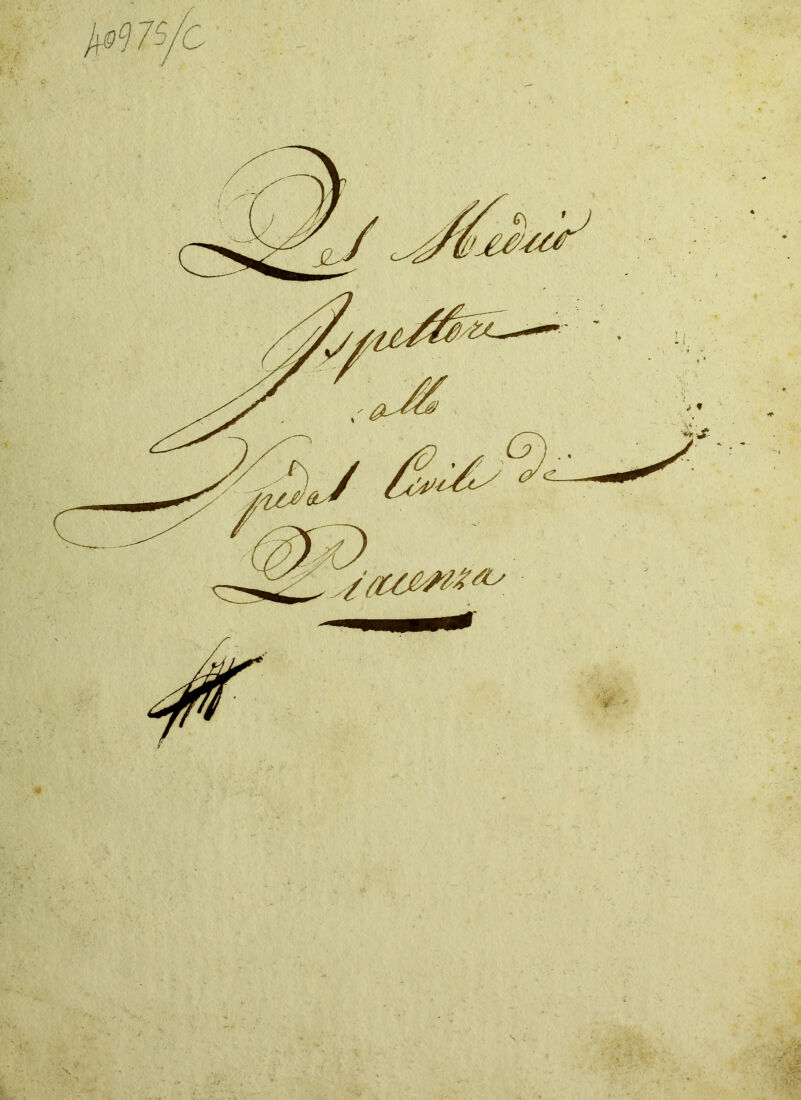 40975/C
Del Medico
Ispettore
allo
Spedal Civile di
Piacenza